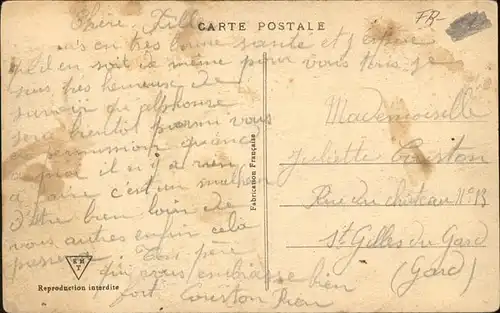 CARTE POSTALE
FR-
Chère Fille
suis en très bonne santé et j'espère
qu'il en soit de même pour vous tous je
suis très heureuse de
savoir que alphonse
sera bientôt parmi vous
en permission quance
a moi il n'y a rien
a faire c'est un malheur
d'être bien loin de
vous autres enfin cela
passera Ton père
qui vous embrasse bien
fort Courton
Mademoiselle
Juliette Courton
Rue du château N° 13
St Gilles du Gard
(Gard)
Fabrication Française
Reproduction interdite